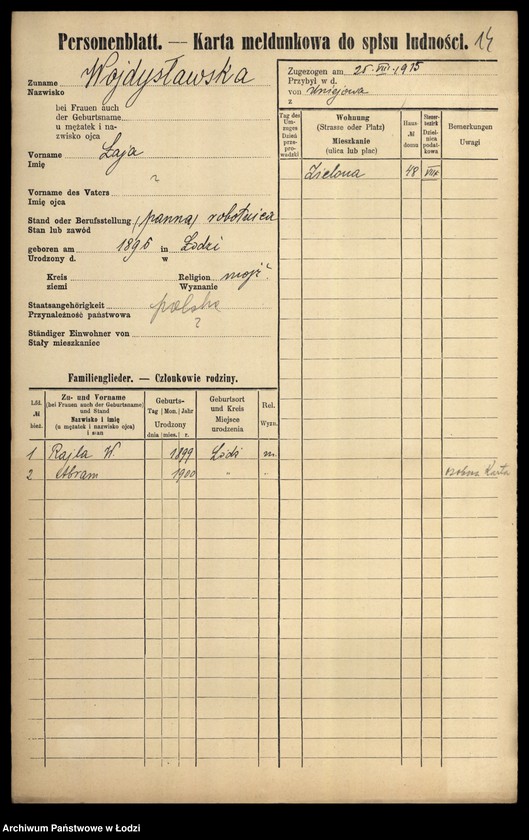 Personenblatt. — Karta meldunkowa do spisu ludności. 14
Zuname Wojdysławska
Nazwisko
bei Frauen auch
der Geburtsname
u mężatek i na-
zwisko ojca
Vorname Łaja
Imię
?
Vorname des Vaters
Imię ojca
Stand oder Berufsstellung (panna) robotnica
Stan lub zawód
geboren am 1895 in Łodzi
Urodzony d. w
Kreis Religion mojż.
ziemi Wyznanie
Staatsangehörigkeit polska
Przynależność państwowa
?
Ständiger Einwohner von
Stały mieszkaniec
Zugezogen am 25 VII 1915
Przybył w d.
von Uniejowa
z
Tag des Um-zuges Dzień prze-pro-wadzki
Wohnung (Strasse oder Platz) Mieszkanie (ulica lub plac)
Haus- № domu
Steuer-bezirk Dziel-nica podat-kowa
Bemerkungen Uwagi
Zielona 48 VIII
Familienglieder. — Członkowie rodziny.
Lfd. № bież.
Zu- und Vorname (bei Frauen auch der Geburtsname) und Stand Nazwisko i imię (u mężatek i nazwisko ojca) i stan
Geburts- Tag Mon. Jahr Urodzony dnia mies. r.
Geburtsort und Kreis Miejsce urodzenia
Rel. Wyzn.
1 Rajla W. 1899 Łódź m.
2 Abram 1900 " "
osobna Karta
Archiwum Państwowe w Łodzi